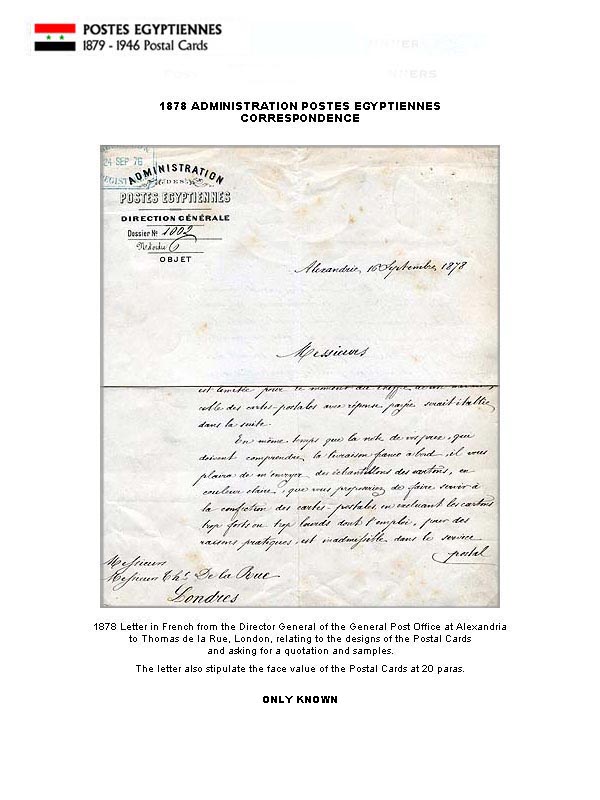 POSTES EGYPTIENNES
1879 - 1946 Postal Cards
1878 ADMINISTRATION POSTES EGYPTIENNES
CORRESPONDENCE
24 SEP 78
REGIST
ADMINISTRATION
DES
POSTES EGYPTIENNES
DIRECTION GÉNÉRALE
Dossier No 1002
OBJET
Alexandrie, 16 Septembre 1878
Messieurs
est limitée pour le moment au chiffre de un
celle des cartes-postales avec réponse payée serait établie
dans la suite.
En même temps que la note de vos prix, que
doivent comprendre la livraison franco à bord, il vous
plaira de m'envoyer des échantillons des cartons, en
couleur claire, que vous proposeriez de faire servir à
la confection des cartes-postales, en excluant les cartons
trop forts ou trop lourds dont l'emploi, pour des
raisons pratiques, est inadmissible dans le service
postal
Messieurs
Messieurs Ths De la Rue
Londres
1878 Letter in French from the Director General of the General Post Office at Alexandria
to Thomas de la Rue, London, relating to the designs of the Postal Cards
and asking for a quotation and samples.
The letter also stipulate the face value of the Postal Cards at 20 paras.
ONLY KNOWN